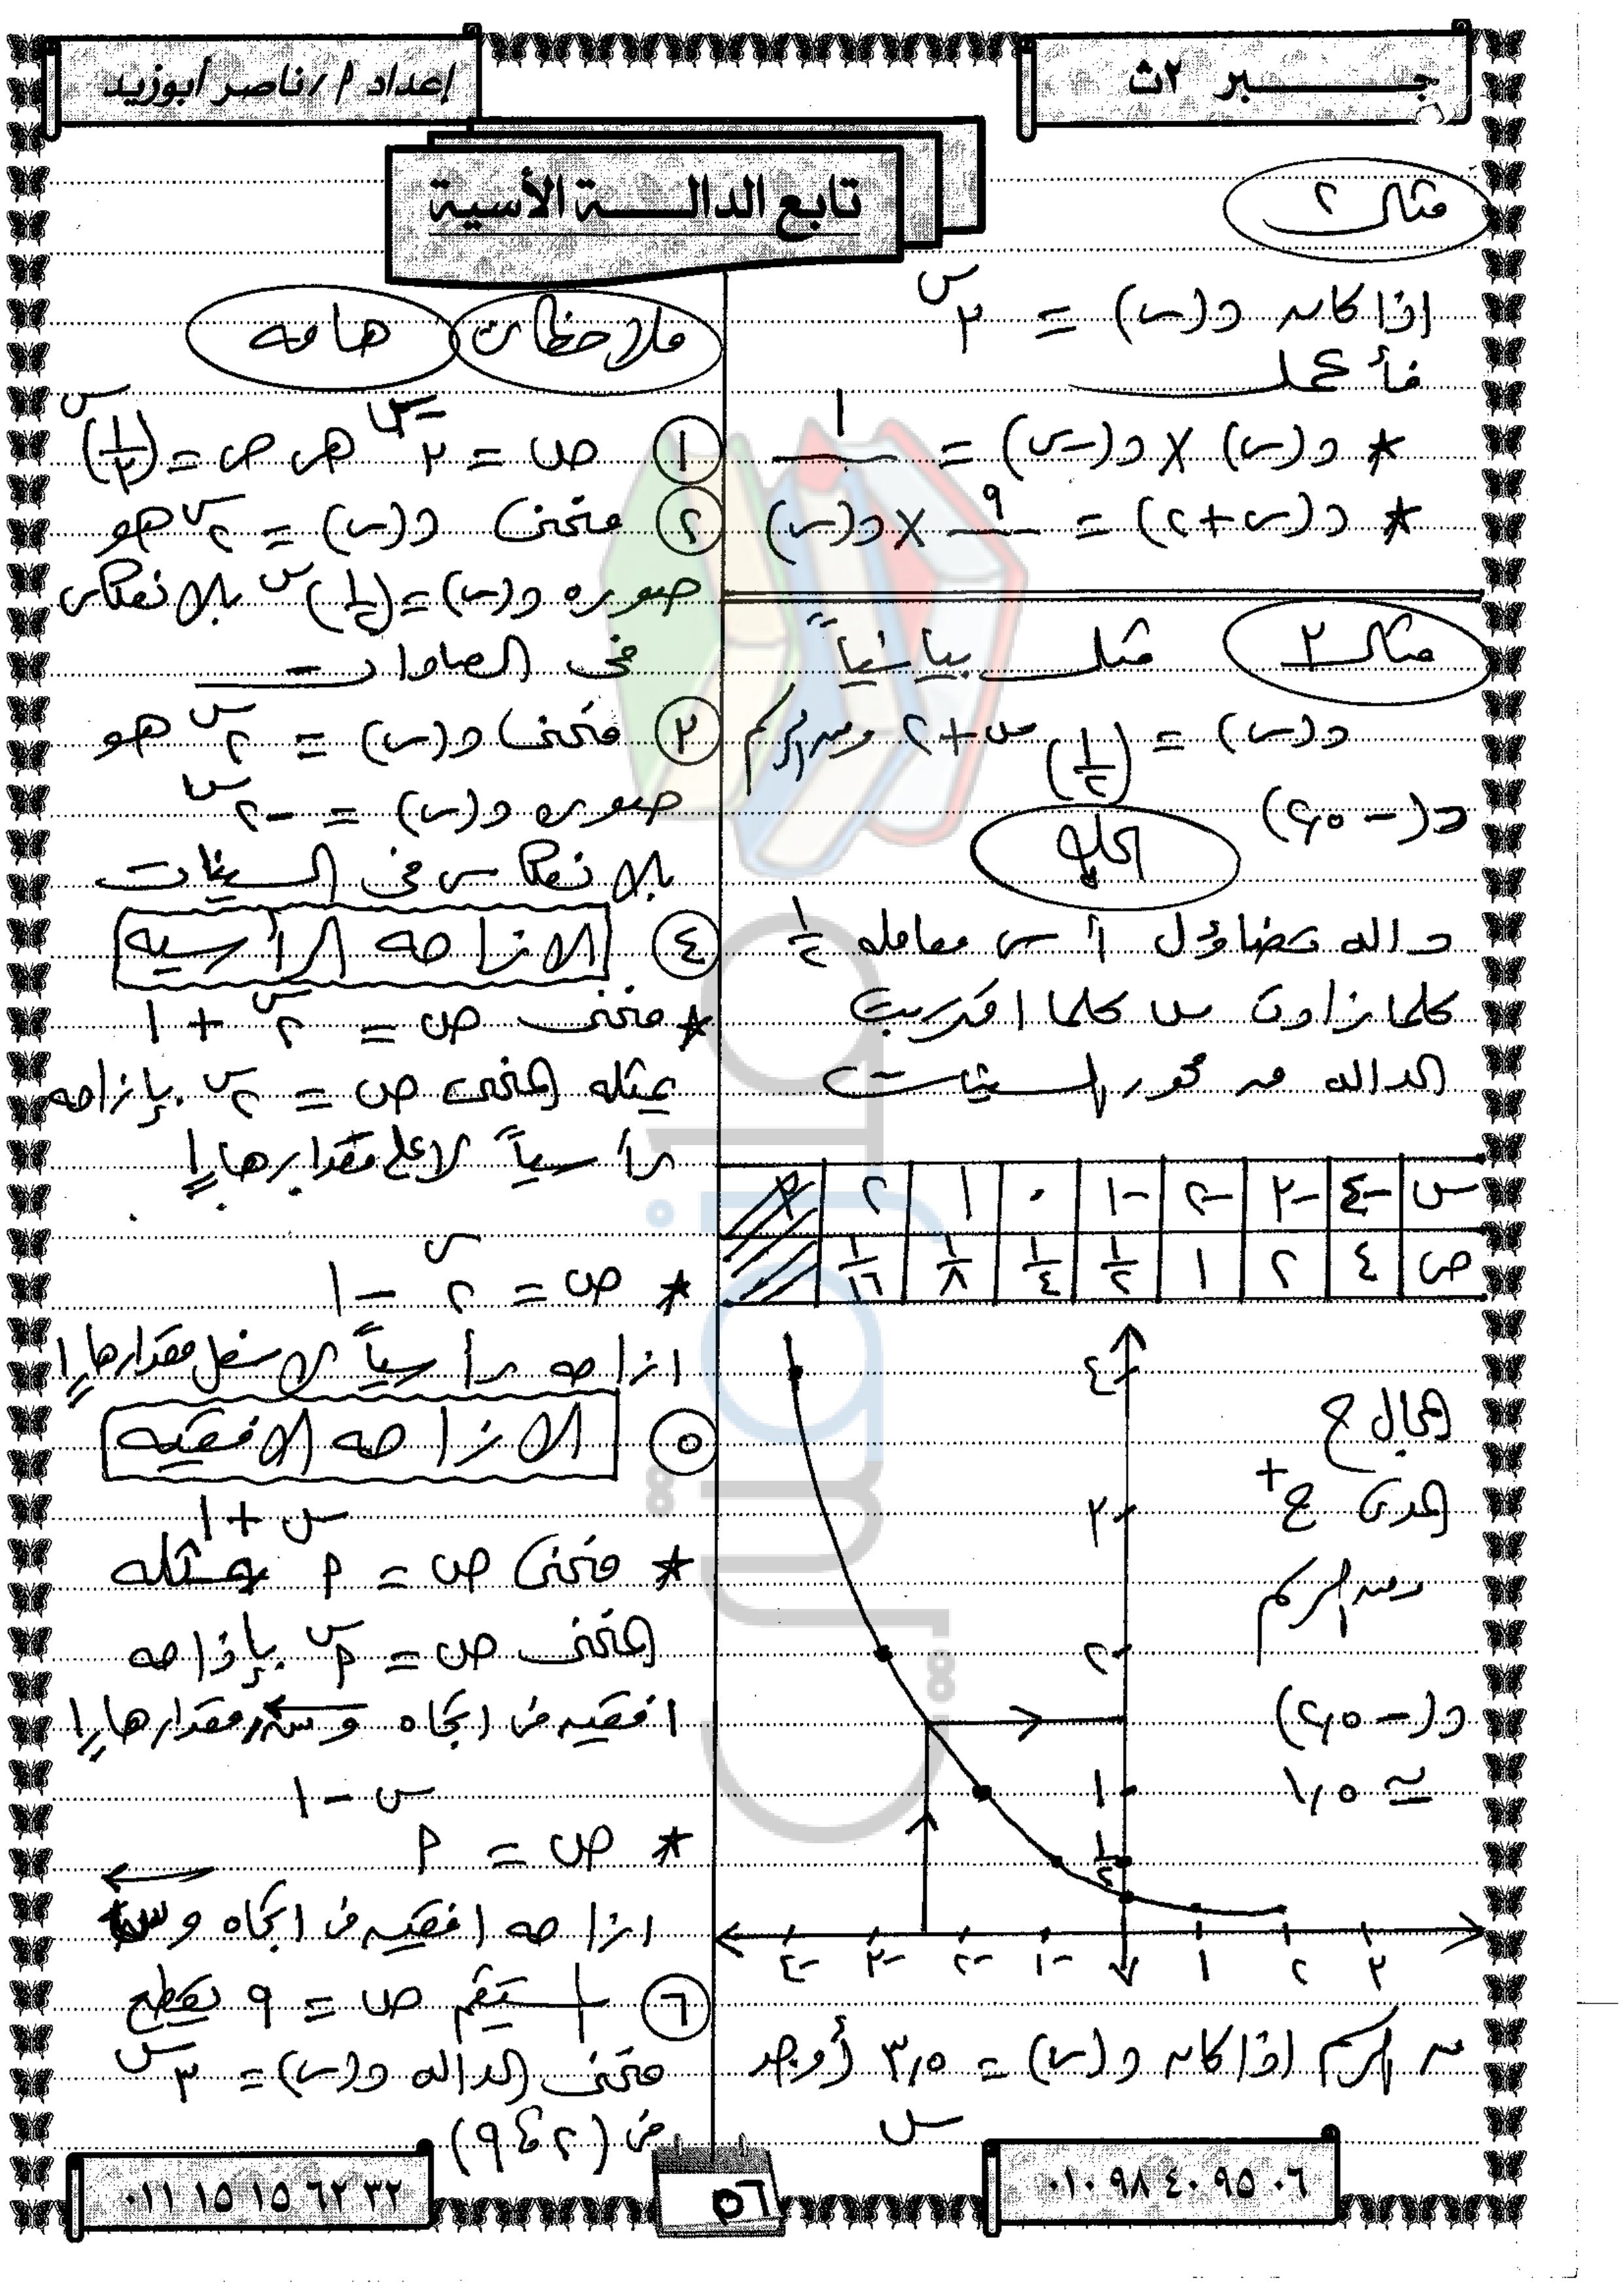 جـــبر ٢ث
إعداد أ/ناصر أبوزيد
تابع الدالـــة الأسية
مثال ٢
اذا كان د(س) = ٣^س
فأكمل
* د(س) × د(-س) = ١
* د(س+٢) = ٩ × د(س)
مثال ٣ مثل بيانياً
د(س) = (١/٢)^س+٢ ومن الرسم
د(-٢,٥)
الحل
داله تضاؤل أسى معامله ١/٢
كلما زادت س كلما اقتربت
الداله من محور السينات
س -٤ -٣ -٢ -١ ٠ ١ ٢ ٣
ص ٤ ٢ ١ ١/٢ ١/٤ ١/٨ ١/١٦
٤
٣
٢
١
١/٢
-٤ -٣ -٢ -١ ١ ٢ ٣
المجال ح
المدى ح+
ومن الرسم
د(-٢,٥)
≃ ١,٥
من الرسم اذا كان د(س) = ٣,٥ أوجد
س
ملاحظات هامه
١ ص = ٣^-س هى ص = (١/٣)^س
٢ منحنى د(س) = ٢^س هو
صوره د(س) = (١/٢)^س بالانعكاس
فى الصادات
٣ منحنى د(س) = ٢^س هو
صوره د(س) = -٢^س
بالانعكاس فى السينات
٤ الازاحه الرأسيه
* منحنى ص = ٢^س + ١
يمثله منحنى ص = ٢^س بإزاحه
رأسياً لاعلى مقدارها ١
* ص = ٢^س - ١
ازاحه رأسياً لاسفل مقدارها ١
٥ الازاحه الافقيه
* منحنى ص = م^س+١ يمثله
منحنى ص = م^س بإزاحه
افقيه فى اتجاه وسَ مقدارها ١
* ص = م^س-١
ازاحه افقيه فى اتجاه وس
٦ المستقيم ص = ٩ يقطع
منحنى الداله د(س) = ٣^س
فى (٢،٩)
٠١٠ ٩٨ ٤٠ ٩٥ ٠٦
٥٦
٠١١ ١٥ ١٥ ٦٢ ٣٢